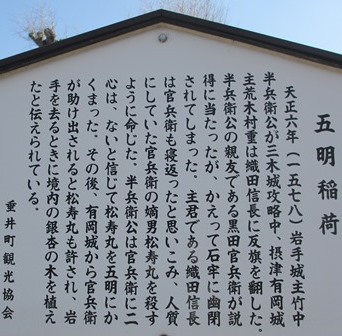 五明稲荷
天正六年(一五七八)岩手城主竹中
半兵衛公が三木城攻略中、摂津有岡城
主荒木村重は織田信長に反旗を翻した。
半兵衛公の親友である黒田官兵衛が説
得に当たったが、かえって石牢に幽閉
されてしまった。主君である織田信長
は官兵衛も寝返ったと思いこみ、人質
にしていた官兵衛の嫡男松寿丸を殺す
ように命じた。半兵衛公は官兵衛に二
心は、ないと信じて松寿丸を五明にか
くまった。その後、有岡城から官兵衛
が助け出されると松寿丸も許され、岩
手を去るときに境内の銀杏の木を植え
たと伝えられている。
垂井町観光協会